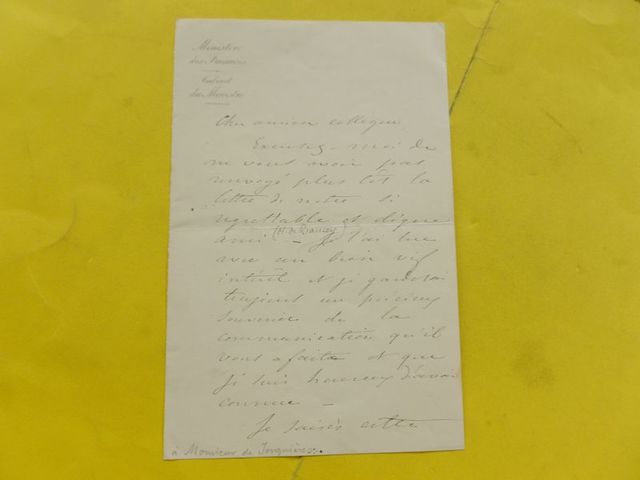 Ministère
des Finances
Cabinet
du Ministre
Cher ancien collègue
Excusez-moi de
ne vous avoir pas
renvoyé plus tôt la
lettre de notre si
regrettable et digne
ami - Je l'ai lue
(H. de Riancey)
avec un bien vif
intérêt et je garderai
toujours un précieux
souvenir de la
communication qu'il
vous a faite et que
je suis heureux d'avoir
connue -
Je saisis cette
à Monsieur de